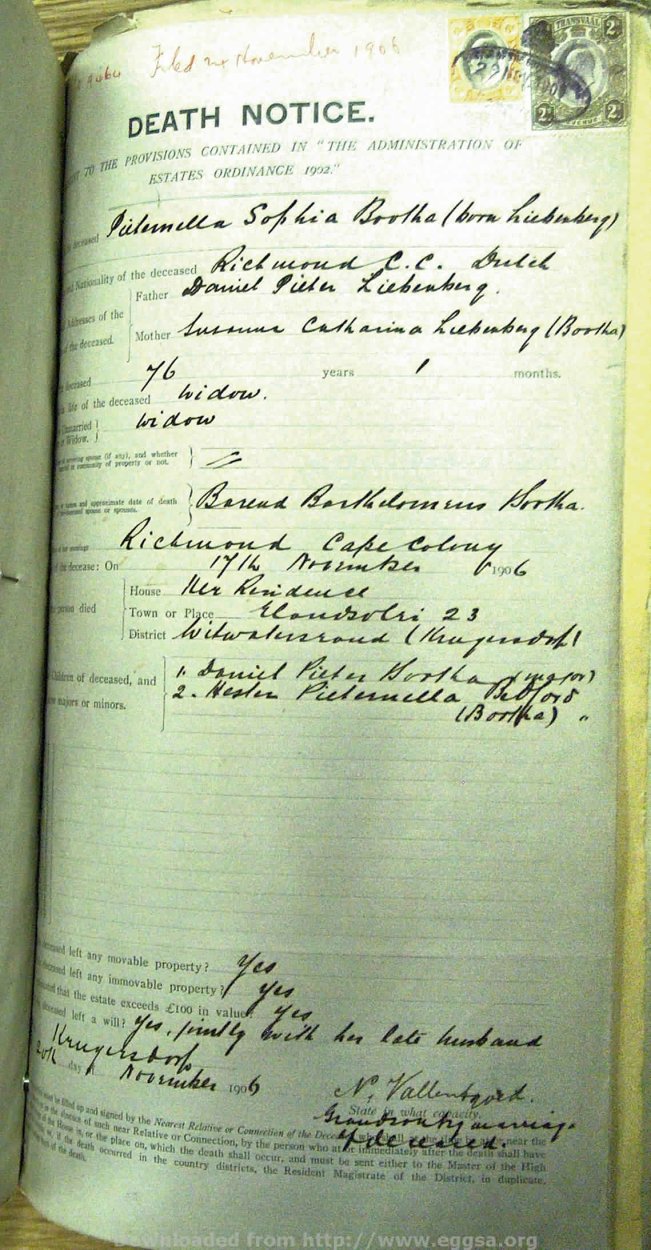 9464 Filed 24 November 1906
TRANSVAAL
2d 2d
DEATH NOTICE.
TO THE PROVISIONS CONTAINED IN "THE ADMINISTRATION OF
ESTATES ORDINANCE 1902."
deceased Pieternella Sophia Bootha (born Liebenberg)
Nationality of the deceased Richmond C.C. Dutch
Addresses of the Father Daniel Pieter Liebenberg.
the deceased. Mother Susanna Catharina Liebenberg (Bootha)
deceased 76 years 1 months.
life of the deceased Widow.
Unmarried Widow
or Widow.
surviving spouse (if any), and whether
in community of property or not.
names and approximate date of death Barend Bartholomeus Bootha.
spouse or spouses.
Richmond Cape Colony
the decease: On 17th November 1906
House Her Residence
person died Town or Place 23
District Witwatersrand (Krugersdorp)
Children of deceased, and 1. Daniel Pieter Bootha (major)
majors or minors. 2. Hester Pieternella
(Bootha) "
deceased left any movable property? Yes
deceased left any immovable property? Yes
that the estate exceeds £100 in value? Yes
deceased left a will? Yes, jointly with her late husband
Krugersdorp
20th day November 1906
N.
State in what capacity.
Grandson by marriage
of deceased.
must be filled up and signed by the Nearest Relative or Connection of the Deceased near the
absence of such near Relative or Connection, by the person who immediately after the death shall have
the House in, or the place on, which the death shall occur, and must be sent either to the Master of the High
if the death occurred in the country districts, the Resident Magistrate of the District, in duplicate,
of the death.
Downloaded from http://www.eggsa.org